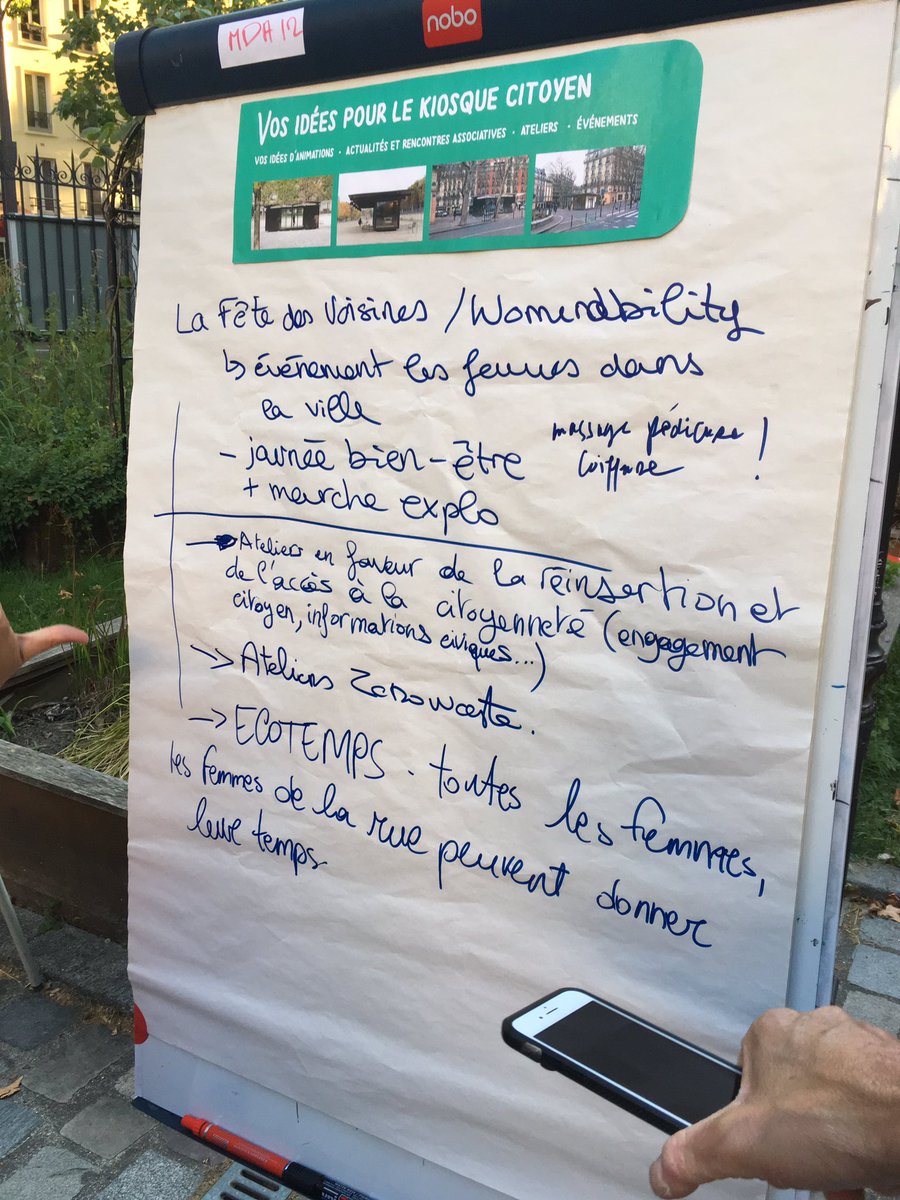 MDA 12
nobo
VOS IDÉES POUR LE KIOSQUE CITOYEN
VOS IDÉES D'ANIMATIONS · ACTUALITÉS ET RENCONTRES ASSOCIATIVES · ATELIERS · ÉVÉNEMENTS
La Fête des Voisines / Womenability
↳ événement les femmes dans
la ville
- journée bien-être
massage pédicure !
coiffure
+ marche explo
→ Ateliers en faveur de la réinsertion et
de l'accès à la citoyenneté (engagement
citoyen, informations civiques...)
→ Ateliers Zerowaste.
→ ECOTEMPS. toutes les femmes,
les femmes de la rue peuvent donner
leur temps